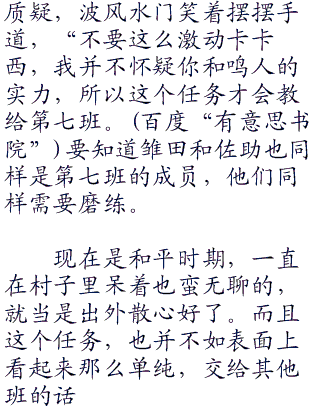 质疑，波风水门笑着摆摆手
道，“不要这么激动卡卡
西，我并不怀疑你和鸣人的
实力，所以这个任务才会教
给第七班。(百度“有意思书
院”)要知道雏田和佐助也同
样是第七班的成员，他们同
样需要磨练。
现在是和平时期，一直
在村子里呆着也蛮无聊的，
就当是出外散心好了。而且
这个任务，也并不如表面上
看起来那么单纯，交给其他
班的话